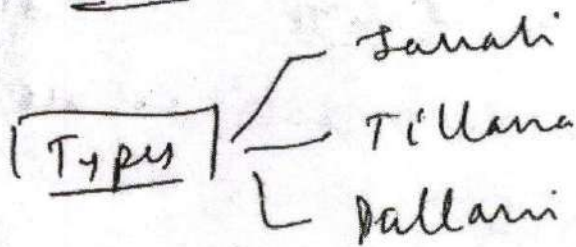 Types
Javali
Tillana
Pallavi